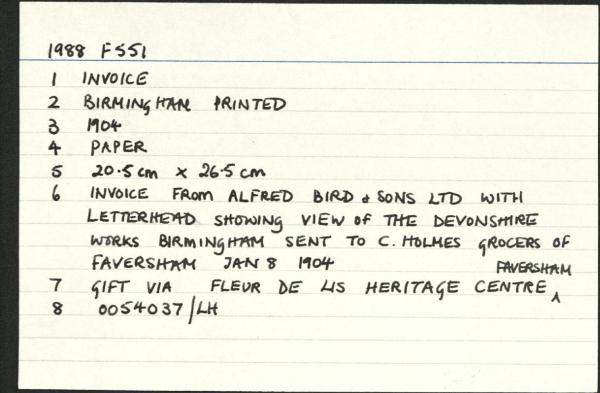 1988 F551
1 INVOICE
2 BIRMINGHAM PRINTED
3 1904
4 PAPER
5 20.5 cm x 26.5 cm
6 INVOICE FROM ALFRED BIRD & SONS LTD WITH
LETTERHEAD SHOWING VIEW OF THE DEVONSHIRE
WORKS BIRMINGHAM SENT TO C. HOLMES GROCERS OF
FAVERSHAM JAN 8 1904
7 GIFT VIA FLEUR DE LIS HERITAGE CENTRE ^ FAVERSHAM
8 0054037/LH